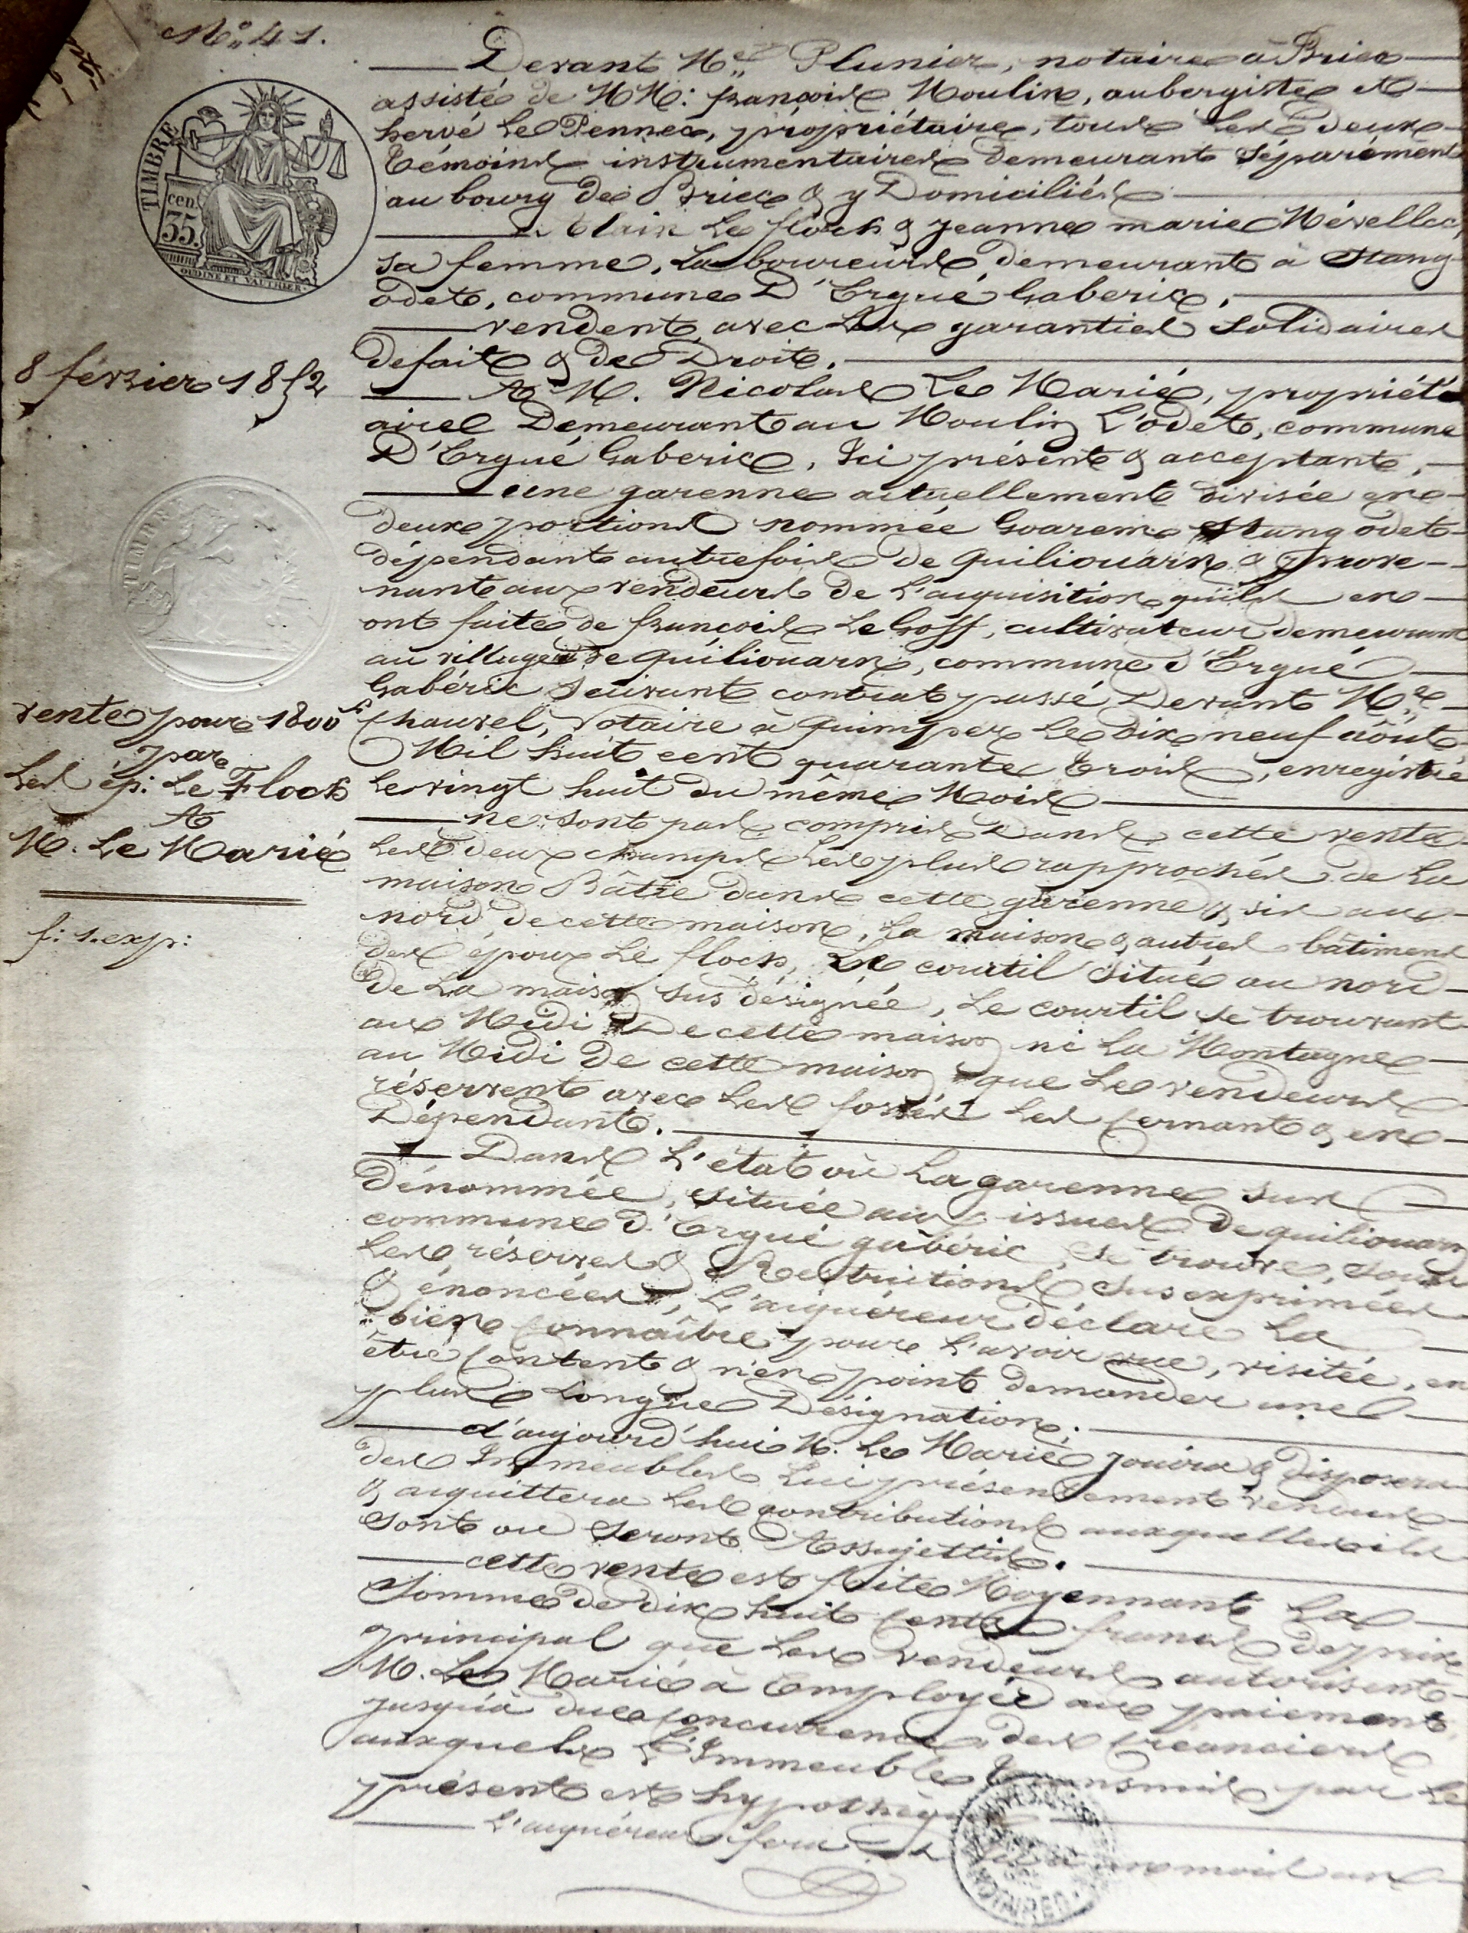 N° 41.
TIMBRE
cen
35.
OUDINÉ ET VAUTHIER.
8 février 1852
TIMBRE
vente pour 1800 f
par
les ép: Le Floch
A
M. Le Marié
f: 1. exp:
Devant Me Plunier, notaire à Briec
assisté de MM: françois Moulin, aubergiste et
hervé Le Pennec, propriétaire, tous les deux
témoins instrumentaires demeurant séparément
au bourg de Briec & y Domiciliés
Alain Le floch & jeanne marie Mévellec,
sa femme, Laboureurs, demeurant à Stang
odet, commune D'Ergué Gaberic,
vendent avec les garanties solidaires
de fait & de Droit,
A M. Nicolas Le Marié, propriét
aire Demeurant au Moulin L'odet, commune
D'Ergué Gaberic, Ici présent & acceptant,
une garenne actuellement divisée en
deux portions nommée Goarem Stang odet
dépendant autrefois de quiliouarn & prove-
nant aux vendeurs de L'acquisition qu'ils en
ont faite de françois Le Goff, cultivateur demeurant
au village de quiliouarn, commune d'Ergué
Gabéric suivant contrat passé Devant Me
Chauvel, Notaire à quimper le dix neuf août
Mil huit cent quarante trois, enregistré
le vingt huit du même Mois
ne sont pas compris dans cette vente
Les deux champs les plus rapprochés de La
maison Bâtie dans cette garenne & sis au
nord de cette maison, La maison & autres bâtiments
des époux Le floch, Le courtil situé au nord
de La maison sus désignée, Le courtil se trouvant
au Midi De cette maison ni La Montagne
au Midi de cette maison que Les vendeurs
réservent avec Les fossés Les cernant & en
Dépendant.
Dans L'état où La garenne sus
dénommée, située aux issues de quiliouarn
commune d'Ergué gabéric, se trouve, sous
Les réserves & Restrictions sus exprimées
& énoncées, L'acquéreur déclare La
bien connaître pour L'avoir vue, visitée, en
être content & n'en point demander une
plus Longue Désignation.
d'aujourd'hui M. Le Marié jouira & disposera
des Immeubles lui présentement vendus
& acquittera Les contributions auxquelles ils
sont ou seront Assujettis.
cette vente est faite Moyennant La
Somme de dix huit cents francs de prix
principal que Les vendeurs autorisent
M. Le Marié à Employer au paiement
jusqu'à due concurrence, des créanciers
auxquels L'Immeuble transmis par Le
présent est hypothéqué
L'acquéreur fera mois
NOTAIRES